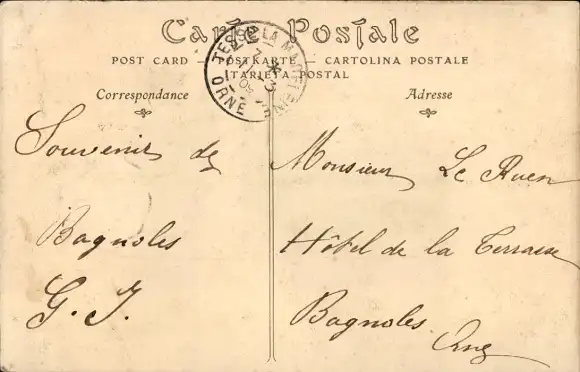 Carte Postale
POST CARD — POSTKARTE — CARTOLINA POSTALE
TARJETA POSTAL
Correspondance
Adresse
TESSÉ-LA-MADELEINE
ORNE
Souvenir de
Bagnoles
G. J.
Monsieur Le Ruen
Hôtel de la Terrasse
Bagnoles
Orne